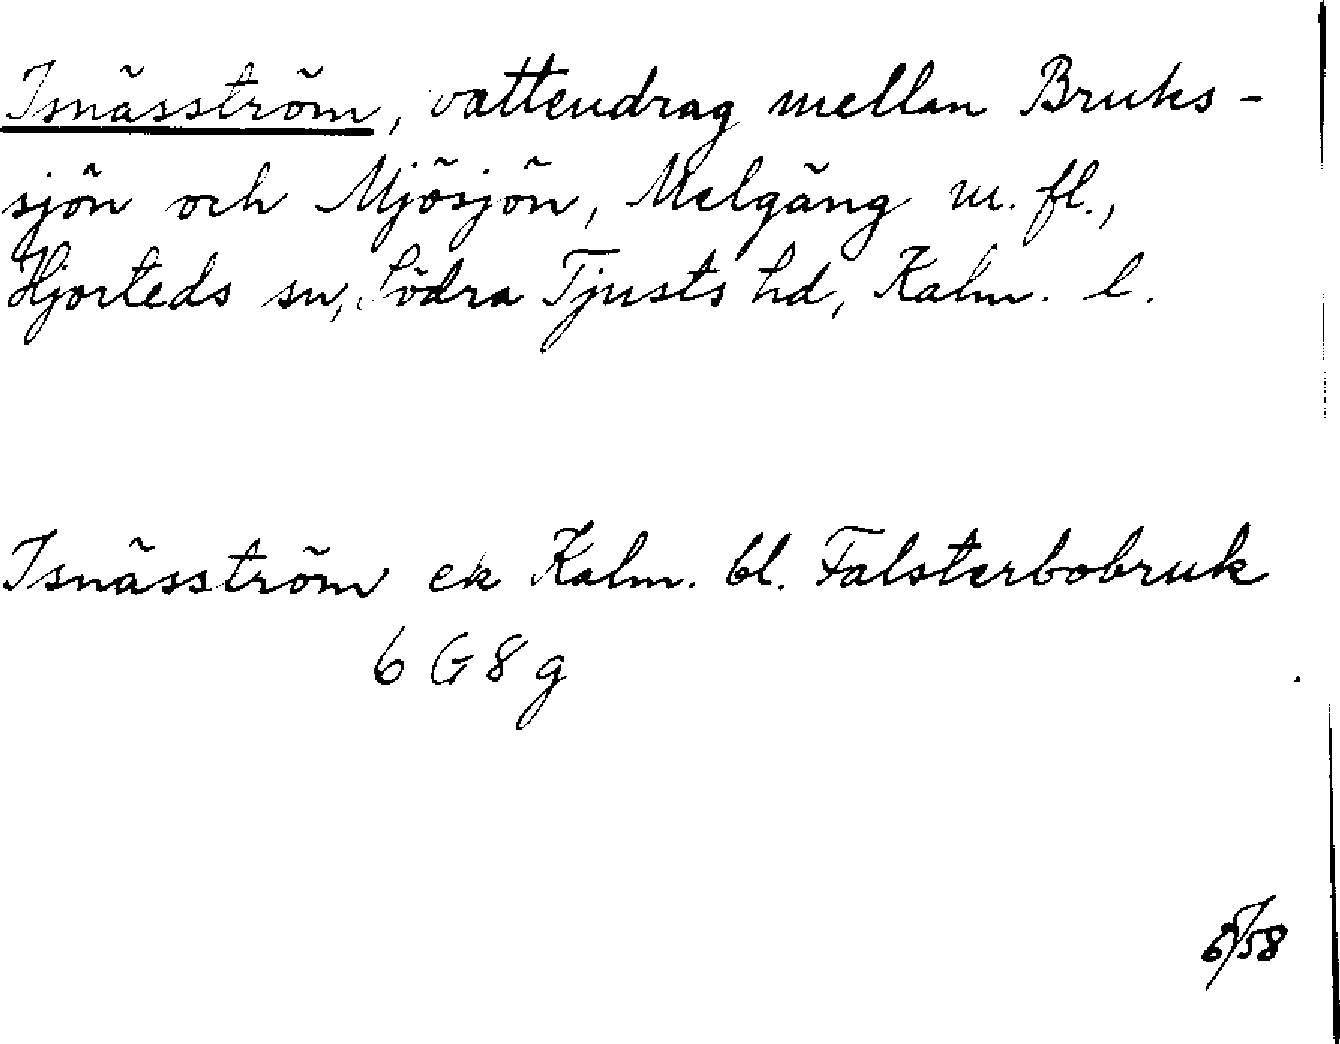 Isnäsström, vattendrag mellan Bruks-
sjön och Mjösjön, Melgäng m. fl.,
Hjorteds sn, Södra Tjusts hd, Kalm. l.
Isnäsström ek Kalm. bl. Falsterbobruk
6 G 8 g